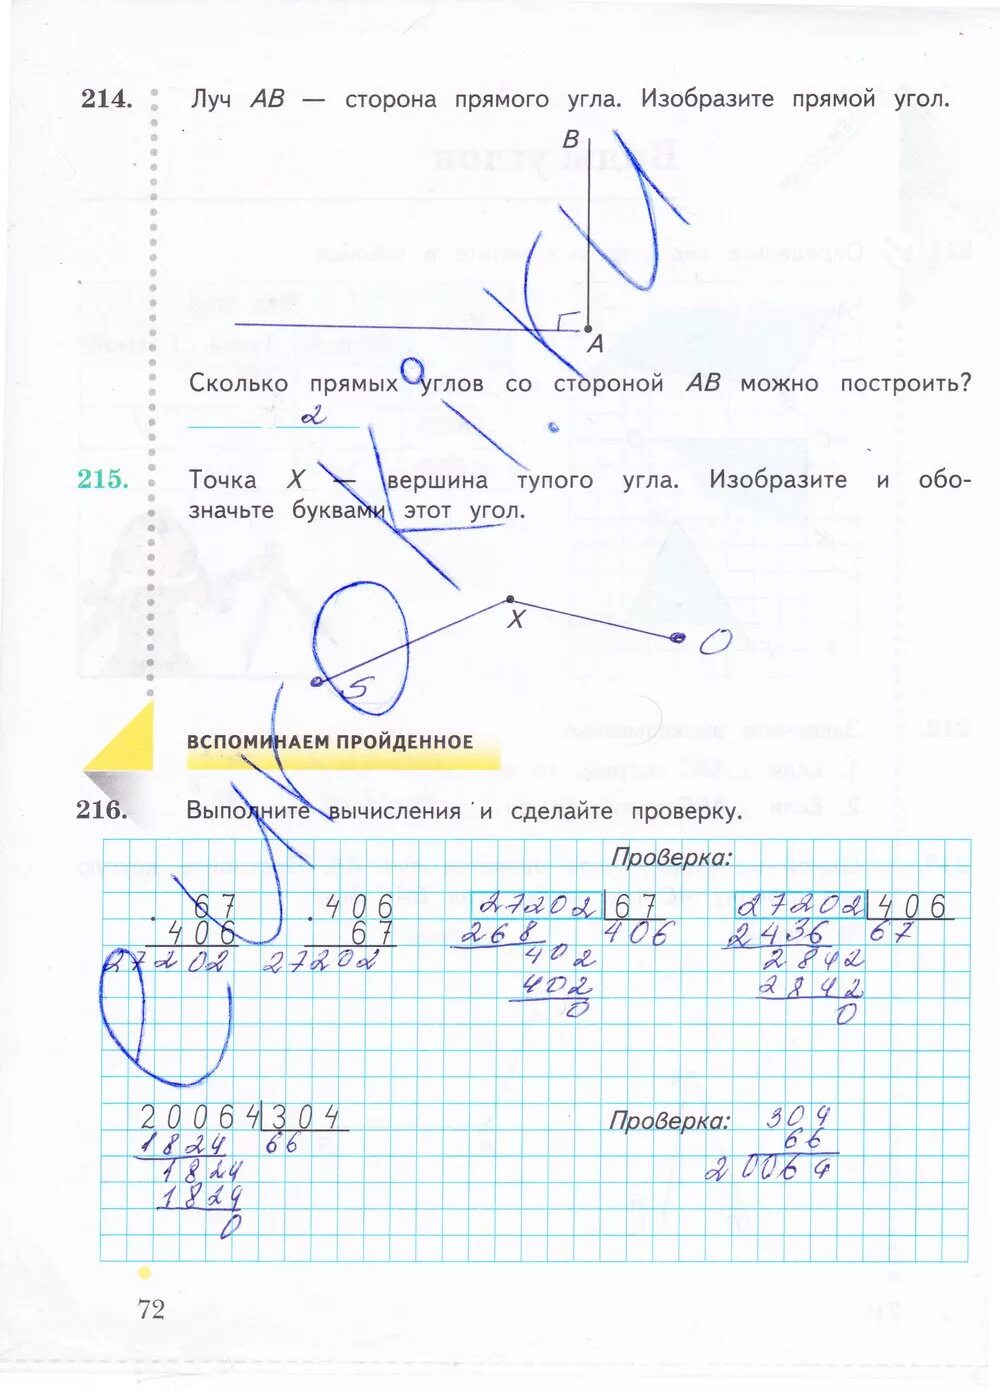 214. Луч AB — сторона прямого угла. Изобразите прямой угол.
B
A
Сколько прямых углов со стороной AB можно построить?
2
215. Точка X — вершина тупого угла. Изобразите и обо-
значьте буквами этот угол.
X
O
S
ВСПОМИНАЕМ ПРОЙДЕННОЕ
216. Выполните вычисления и сделайте проверку.
Проверка:
· 67 · 406 27202 67 27202 406
406 67 268 406 2436 67
27202 27202 402 2842
402 2842
0 0
20064 304 Проверка: 304
1824 66 66
1824 20064
1824
0
72